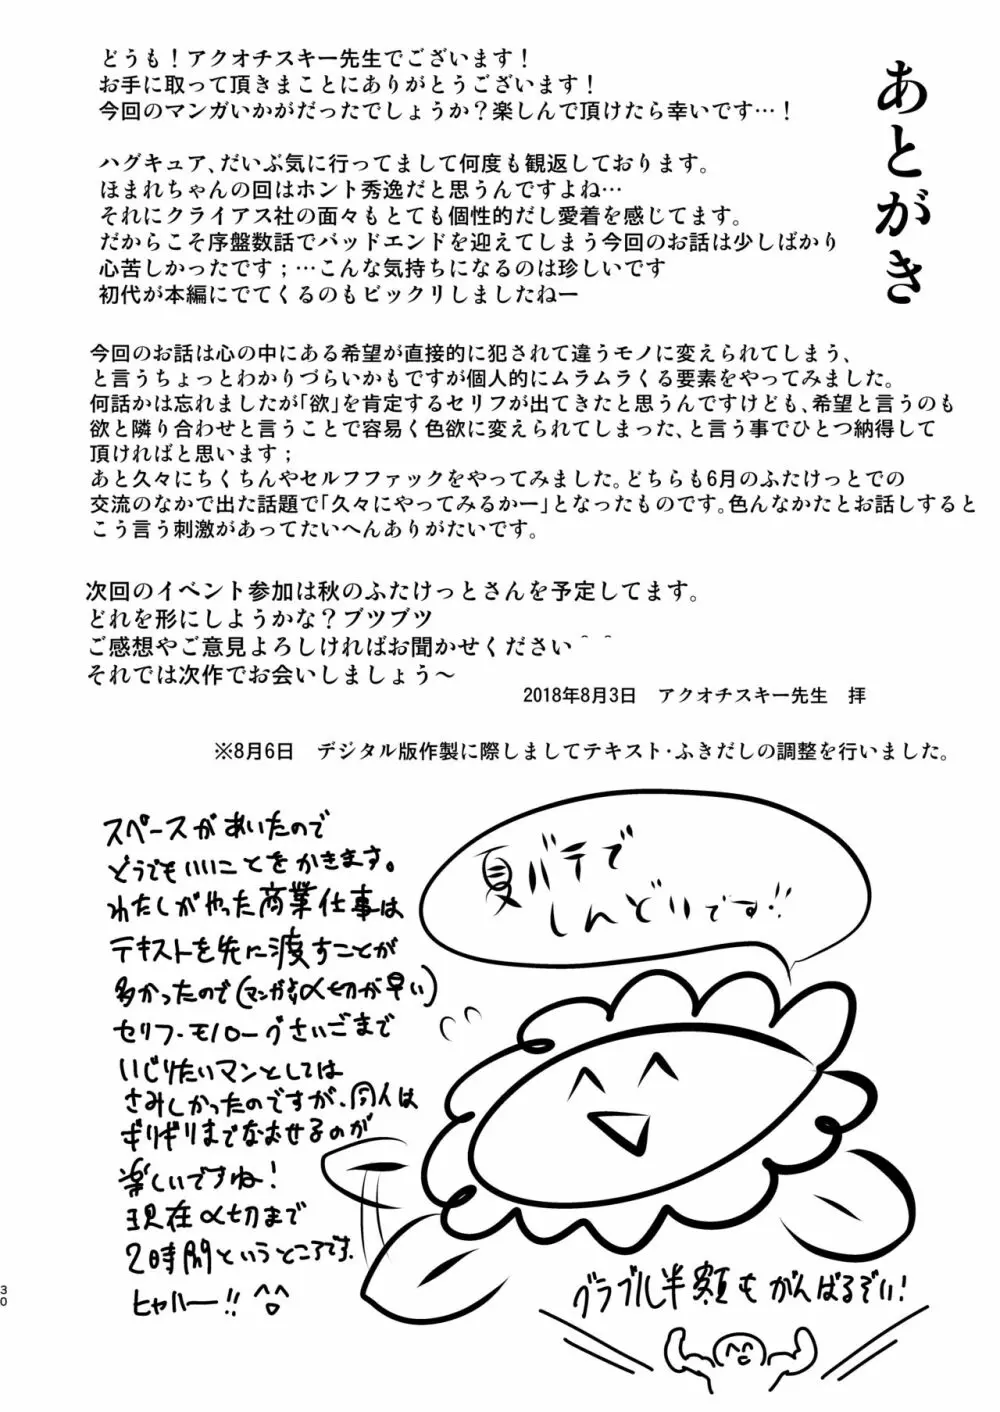 あとがき
どうも！アクオチスキー先生でございます！
お手に取って頂きまことにありがとうございます！
今回のマンガいかがだったでしょうか？楽しんで頂けたら幸いです…！
ハグキュア、だいぶ気に行ってまして何度も観返しております。
ほまれちゃんの回はホント秀逸だと思うんですよね…
それにクライアス社の面々もとても個性的だし愛着を感じてます。
だからこそ序盤数話でバッドエンドを迎えてしまう今回のお話は少しばかり
心苦しかったです；…こんな気持ちになるのは珍しいです
初代が本編にでてくるのもビックリしましたねー
今回のお話は心の中にある希望が直接的に犯されて違うモノに変えられてしまう、
と言うちょっとわかりづらいかもですが個人的にムラムラくる要素をやってみました。
何話かは忘れましたが「欲」を肯定するセリフが出てきたと思うんですけども、希望と言うのも
欲と隣り合わせと言うことで容易く色欲に変えられてしまった、と言う事でひとつ納得して
頂ければと思います；
あと久々にちくちんやセルフファックをやってみました。どちらも6月のふたけっとでの
交流のなかで出た話題で「久々にやってみるかー」となったものです。色んなかたとお話しすると
こう言う刺激があってたいへんありがたいです。
次回のイベント参加は秋のふたけっとさんを予定してます。
どれを形にしようかな？ブツブツ
ご感想やご意見よろしければお聞かせください＾＾
それでは次作でお会いしましょう～
2018年8月3日　アクオチスキー先生　拝
※8月6日　デジタル版作製に際しましてテキスト・ふきだしの調整を行いました。
スペースがあいたので
どうでもいいことをかきます。
わたしがやった商業仕事は
テキストを先に渡すことが
多かったので(マンガより〆切が早い)
セリフ・モノローグさいごまで
いじりたいマンとしては
さみしかったのですが、同人は
ギリギリまでなおせるのが
楽しいですね！
現在〆切まで
2時間というところです。
ヒャハー!!
夏バテで
しんどいです!!
グラブル半額もがんばるぞい！
30